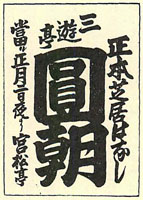 正本芝居はなし
三遊亭
圓朝
當ル正月二日夜より宮松亭